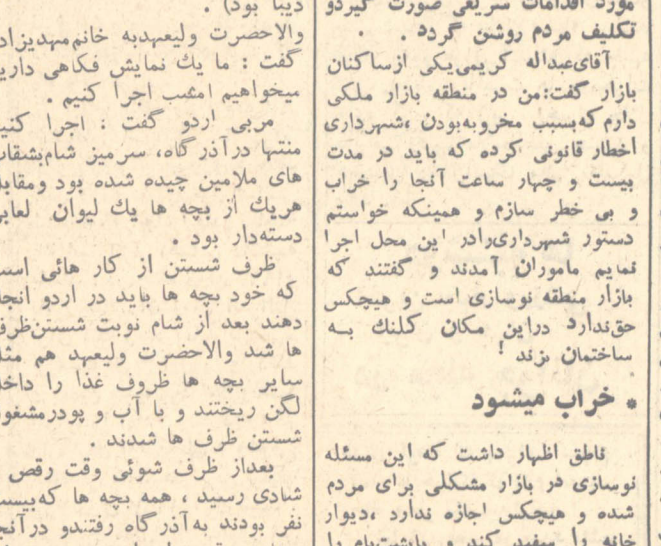 مورد اقدامات سریعی صورت گیردو
تکلیف مردم روشن گردد .
آقای‌عبداله کریمی‌یکی ازساکنان
بازار گفت:من در منطقه بازار ملکی
دارم که‌بسبب مخروبه‌بودن ،شهرداری
اخطار قانونی کرده که باید در مدت
بیست و چهار ساعت آنجا را خراب
و بی خطر سازم و همینکه خواستم
دستور شهرداری‌رادر این محل اجرا
نمایم ماموران آمدند و گفتند که
بازار منطقه نوسازی است و هیچکس
حق‌ندارد دراین مکان کلنك به
ساختمان بزند !
* خراب میشود
ناطق اظهار داشت که این مسئله
نوسازی در بازار مشکلی برای مردم
شده و هیچکس اجازه ندارد ،دیوار
خانه را سفید کند و پاپشت‌بام را
دیبا بود) .
والاحضرت ولیعهدبه خانم‌مهدیزاد
گفت : ما یك نمایش فکاهی داری
میخواهیم امشب اجرا کنیم .
مربی اردو گفت : اجرا کنی
منتها درآذرگاه، سرمیز شام‌بشقاب
های ملامین چیده شده بود ومقاب
هریك از بچه ها یك لیوان لعاب
دسته‌دار بود .
ظرف شستن از کار هائی است
که خود بچه ها باید در اردو انجا
دهند بعد از شام نوبت شستن‌ظرف
ها شد والاحضرت ولیعهد هم مثل
سایر بچه ها ظروف غذا را داخل
لگن ریختند و با آب و پودرمشغول
شستن ظرف ها شدند .
بعداز ظرف شوئی وقت رقص
شادی رسید ، همه بچه ها که‌بیست
نفر بودند به‌آذرگاه رفتندو درآنجا